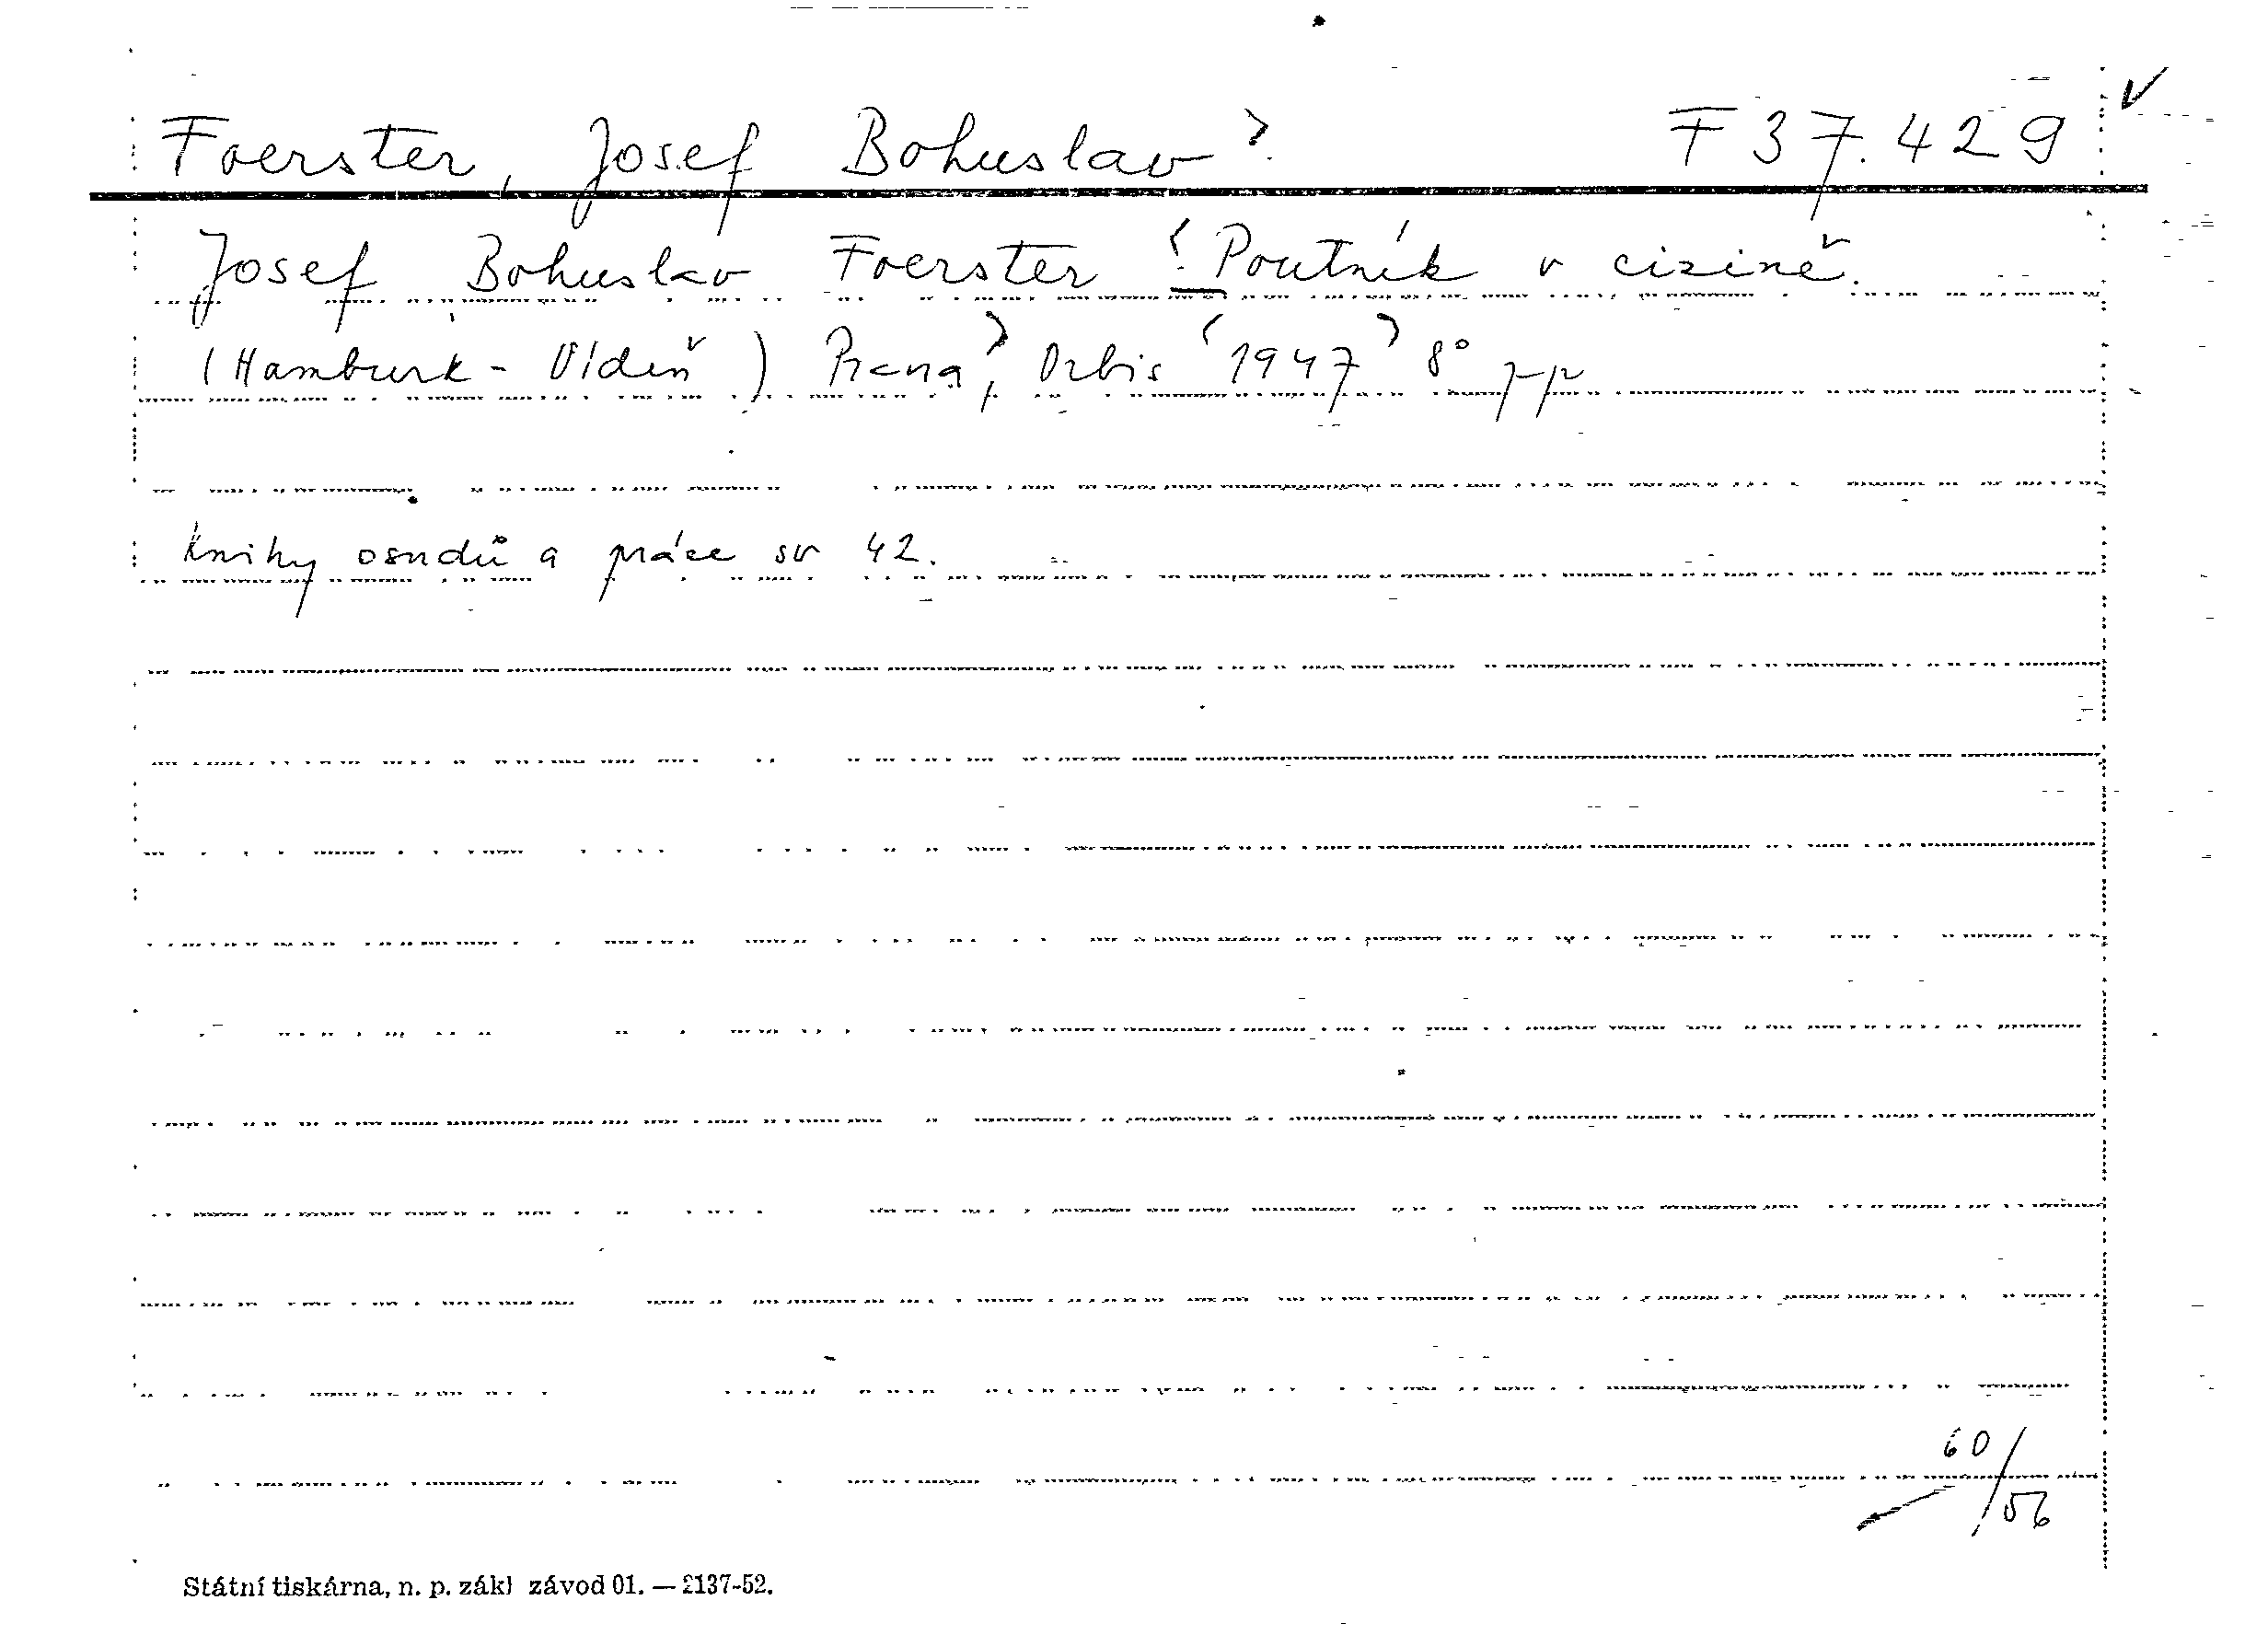 Foerster, Josef Bohuslav > F 37.429
Josef Bohuslav Foerster < Poutník v cizině.
(Hamburk - Vídeň) Praha >, Orbis < 1947 > 8°
Knihy osudů a práce sv 42.
60/56
Státní tiskárna, n. p. zákl závod 01. — 2137-52.